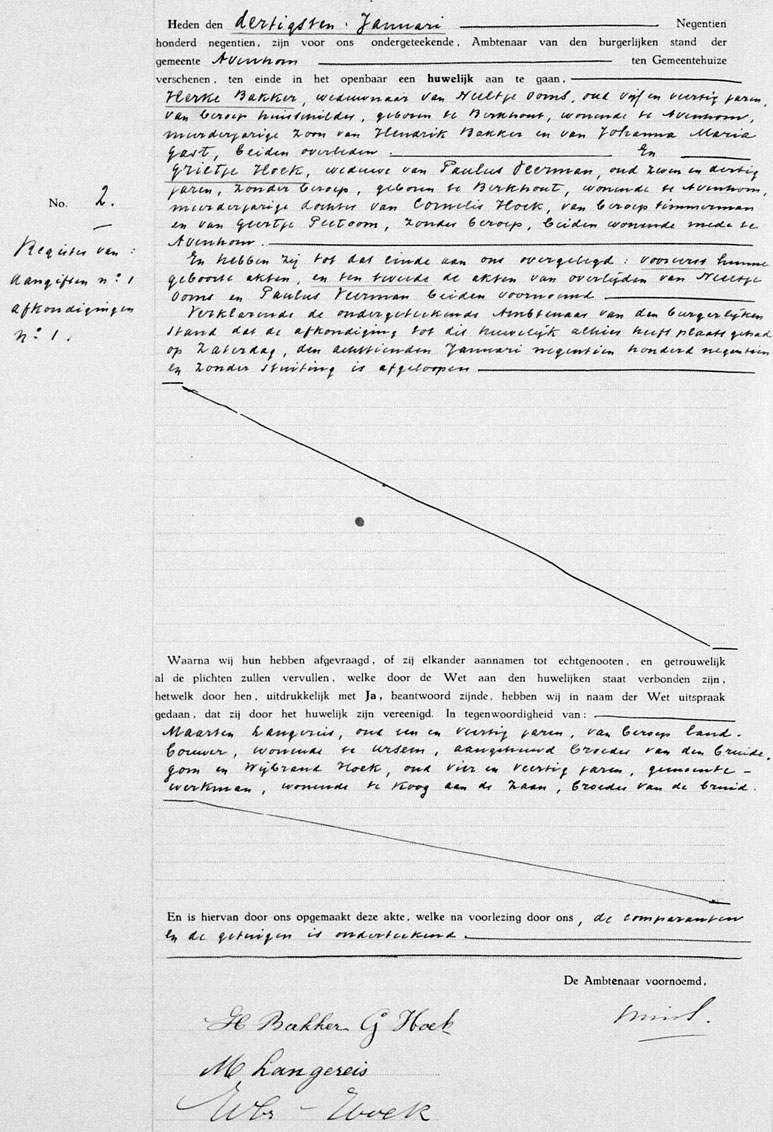 Heden den dertigsten Januari Negentien
honderd negentien, zijn voor ons ondergeteekende, Ambtenaar van den burgerlijken stand der
gemeente Avenhorn ten Gemeentehuize
verschenen, ten einde in het openbaar een huwelijk aan te gaan,
Herke Bakker, weduwnaar van Neeltje Ooms, oud vijf en veertig jaren,
van beroep huisschilder, geboren te Berkhout, wonende te Avenhorn,
meerderjarige zoon van Hendrik Bakker en van Johanna Maria
Gast, beiden overleden. En
Grietje Hoek, weduwe van Paulus Veerman, oud zeven en dertig
jaren, zonder beroep, geboren te Berkhout, wonende te Avenhorn,
meerderjarige dochter van Cornelis Hoek, van beroep timmerman
en van Geertje Peetoom, zonder beroep, beiden wonende mede te
Avenhorn.
No. 2.
Register van:
aangiften no. 1
afkondigingen
no. 1.
En hebben zij tot dat einde aan ons overgelegd: vooreerst hunne
geboorte akten, en ten tweede de akten van overlijden van Neeltje
Ooms en Paulus Veerman beiden voornoemd
Verklarende de ondergeteekende Ambtenaar van den burgerlijken
stand dat de afkondiging tot dit huwelijk alhier heeft plaats gehad
op Zaterdag, den achttienden Januari negentien honderd negentien
en zonder stuiting is afgeloopen
Waarna wij hun hebben afgevraagd, of zij elkander aannamen tot echtgenooten, en getrouwelijk
al de plichten zullen vervullen, welke door de Wet aan den huwelijken staat verbonden zijn,
hetwelk door hen, uitdrukkelijk met Ja, beantwoord zijnde, hebben wij in naam der Wet uitspraak
gedaan, dat zij door het huwelijk zijn vereenigd. In tegenwoordigheid van:
Maarten Langereis, oud een en veertig jaren, van beroep land-
bouwer, wonende te Ursem, aangehuwd broeder van den bruide-
gom en Wijbrand Hoek, oud vier en veertig jaren, gemeente-
werkman, wonende te Koog aan de Zaan, broeder van de bruid.
En is hiervan door ons opgemaakt deze akte, welke na voorlezing door ons, de comparanten
en de getuigen is onderteekend.
De Ambtenaar voornoemd,
H Bakker G Hoek
M Langereis
Wbr Hoek